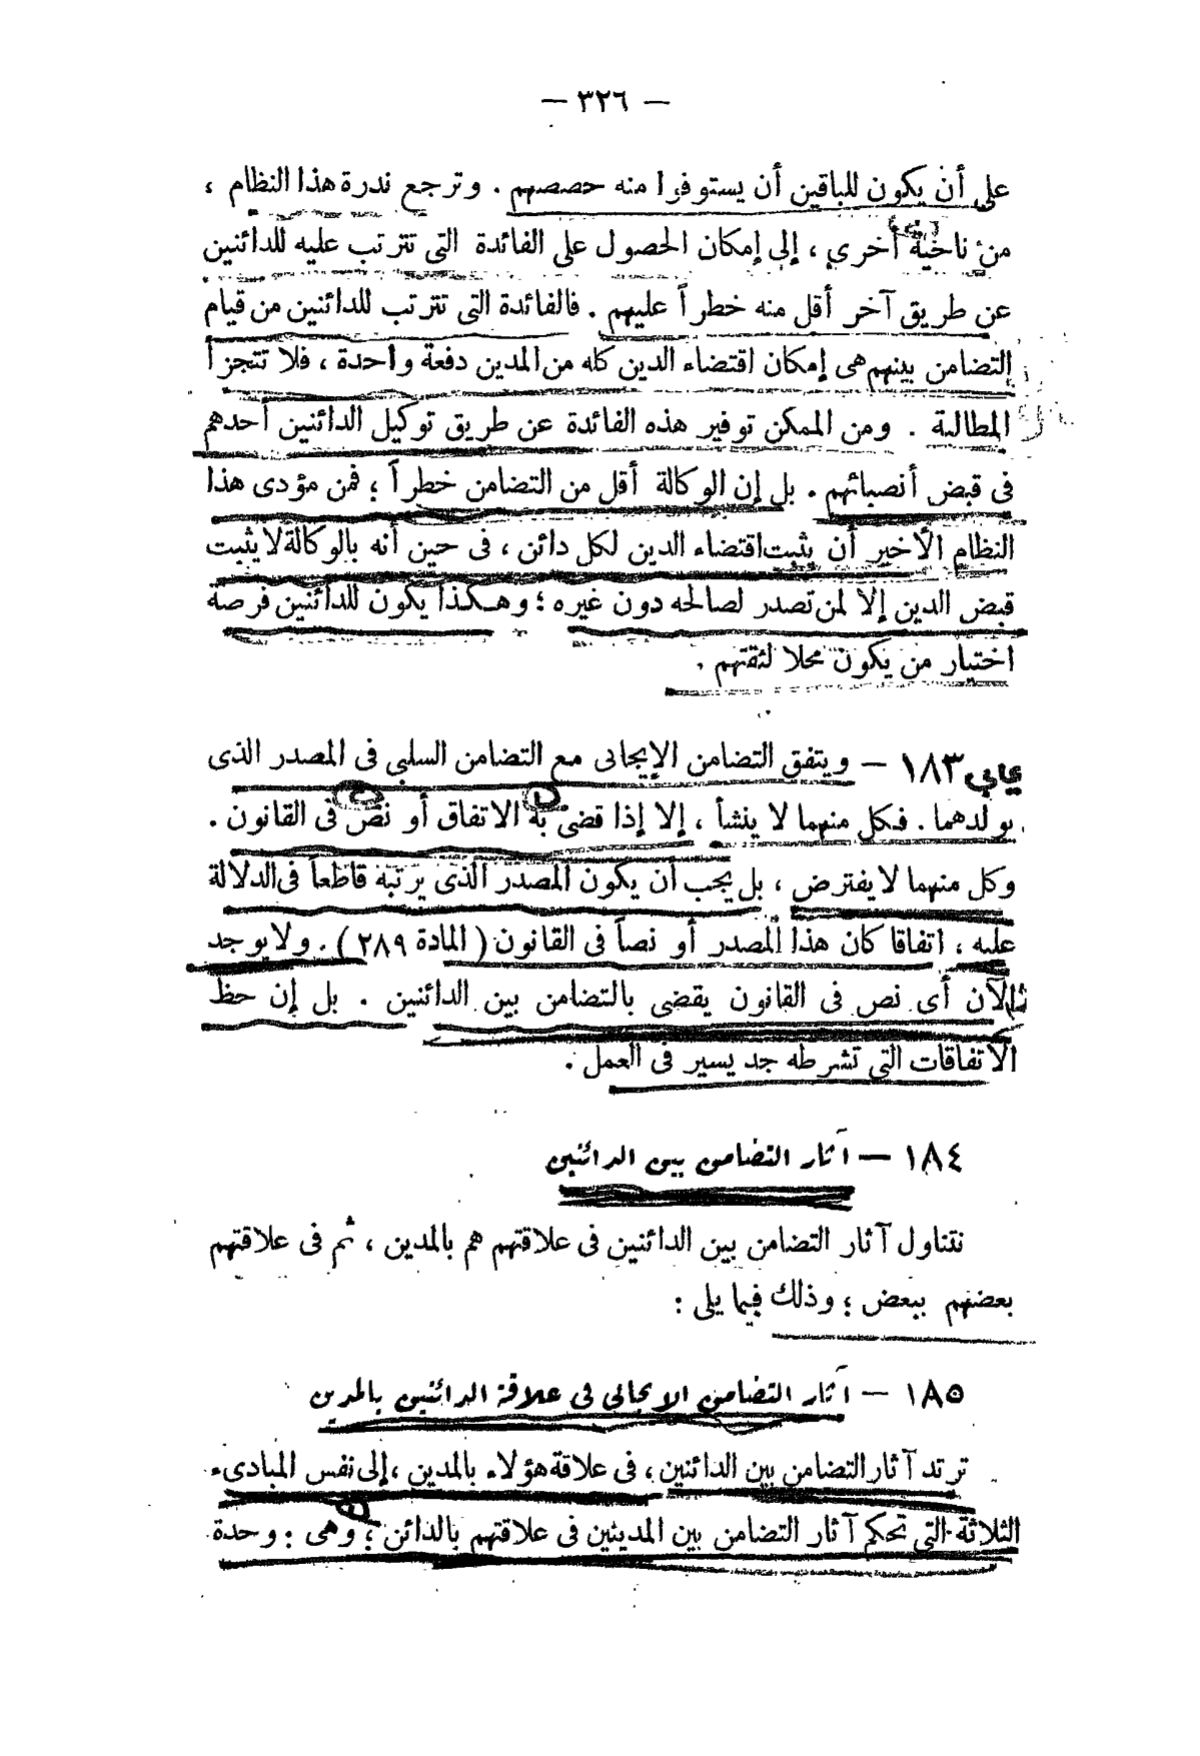 — ٣٢٦ —
على أن يكون للباقين أن يستوفوا منه حصصهم . وترجع ندرة هذا النظام ،
من ناحية أخرى ، إلى إمكان الحصول على الفائدة التى تترتب عليه للدائنين
عن طريق آخر أقل منه خطراً عليهم . فالفائدة التى تترتب للدائنين من قيام
التضامن بينهم هى إمكان اقتضاء الدين كله من المدين دفعة واحدة ، فلا تتجزأ
المطالبة . ومن الممكن توفير هذه الفائدة عن طريق توكيل الدائنين أحدهم
فى قبض أنصبائهم . بل إن الوكالة أقل من التضامن خطراً ؛ فمن مؤدى هذا
النظام الأخير أن يثبت اقتضاء الدين لكل دائن ، فى حين أنه بالوكالة لا يثبت
قبض الدين إلا لمن تصدر لصالحه دون غيره ؛ وهكذا يكون للدائنين فرصة
اختيار من يكون محلا لثقتهم .
١٨٣ — ويتفق التضامن الإيجابى مع التضامن السلبى فى المصدر الذى
يولدهما . فكل منهما لا ينشأ ، إلا إذا قضى به الاتفاق أو نص فى القانون .
وكل منهما لا يفترض ، بل يجب أن يكون المصدر الذى يرتبه قاطعاً فى الدلالة
عليه ، اتفاقا كان هذا المصدر أو نصاً فى القانون ( المادة ٢٨٩ ) . ولا يوجد
الآن أى نص فى القانون يقضى بالتضامن بين الدائنين . بل إن حظ
الاتفاقات التى تشرطه جد يسير فى العمل .
١٨٤ — آثار التضامن بين الدائنين
نتناول آثار التضامن بين الدائنين فى علاقتهم هم بالمدين ، ثم فى علاقتهم
بعضهم ببعض ؛ وذلك فيما يلى :
١٨٥ — آثار التضامن الايجابى فى علاقة الدائنين بالمدين
ترتد آثار التضامن بين الدائنين ، فى علاقة هؤلاء بالمدين ، إلى نفس المبادىء
الثلاثة التى تحكم آثار التضامن بين المدينين فى علاقتهم بالدائن ؛ وهى : وحدة